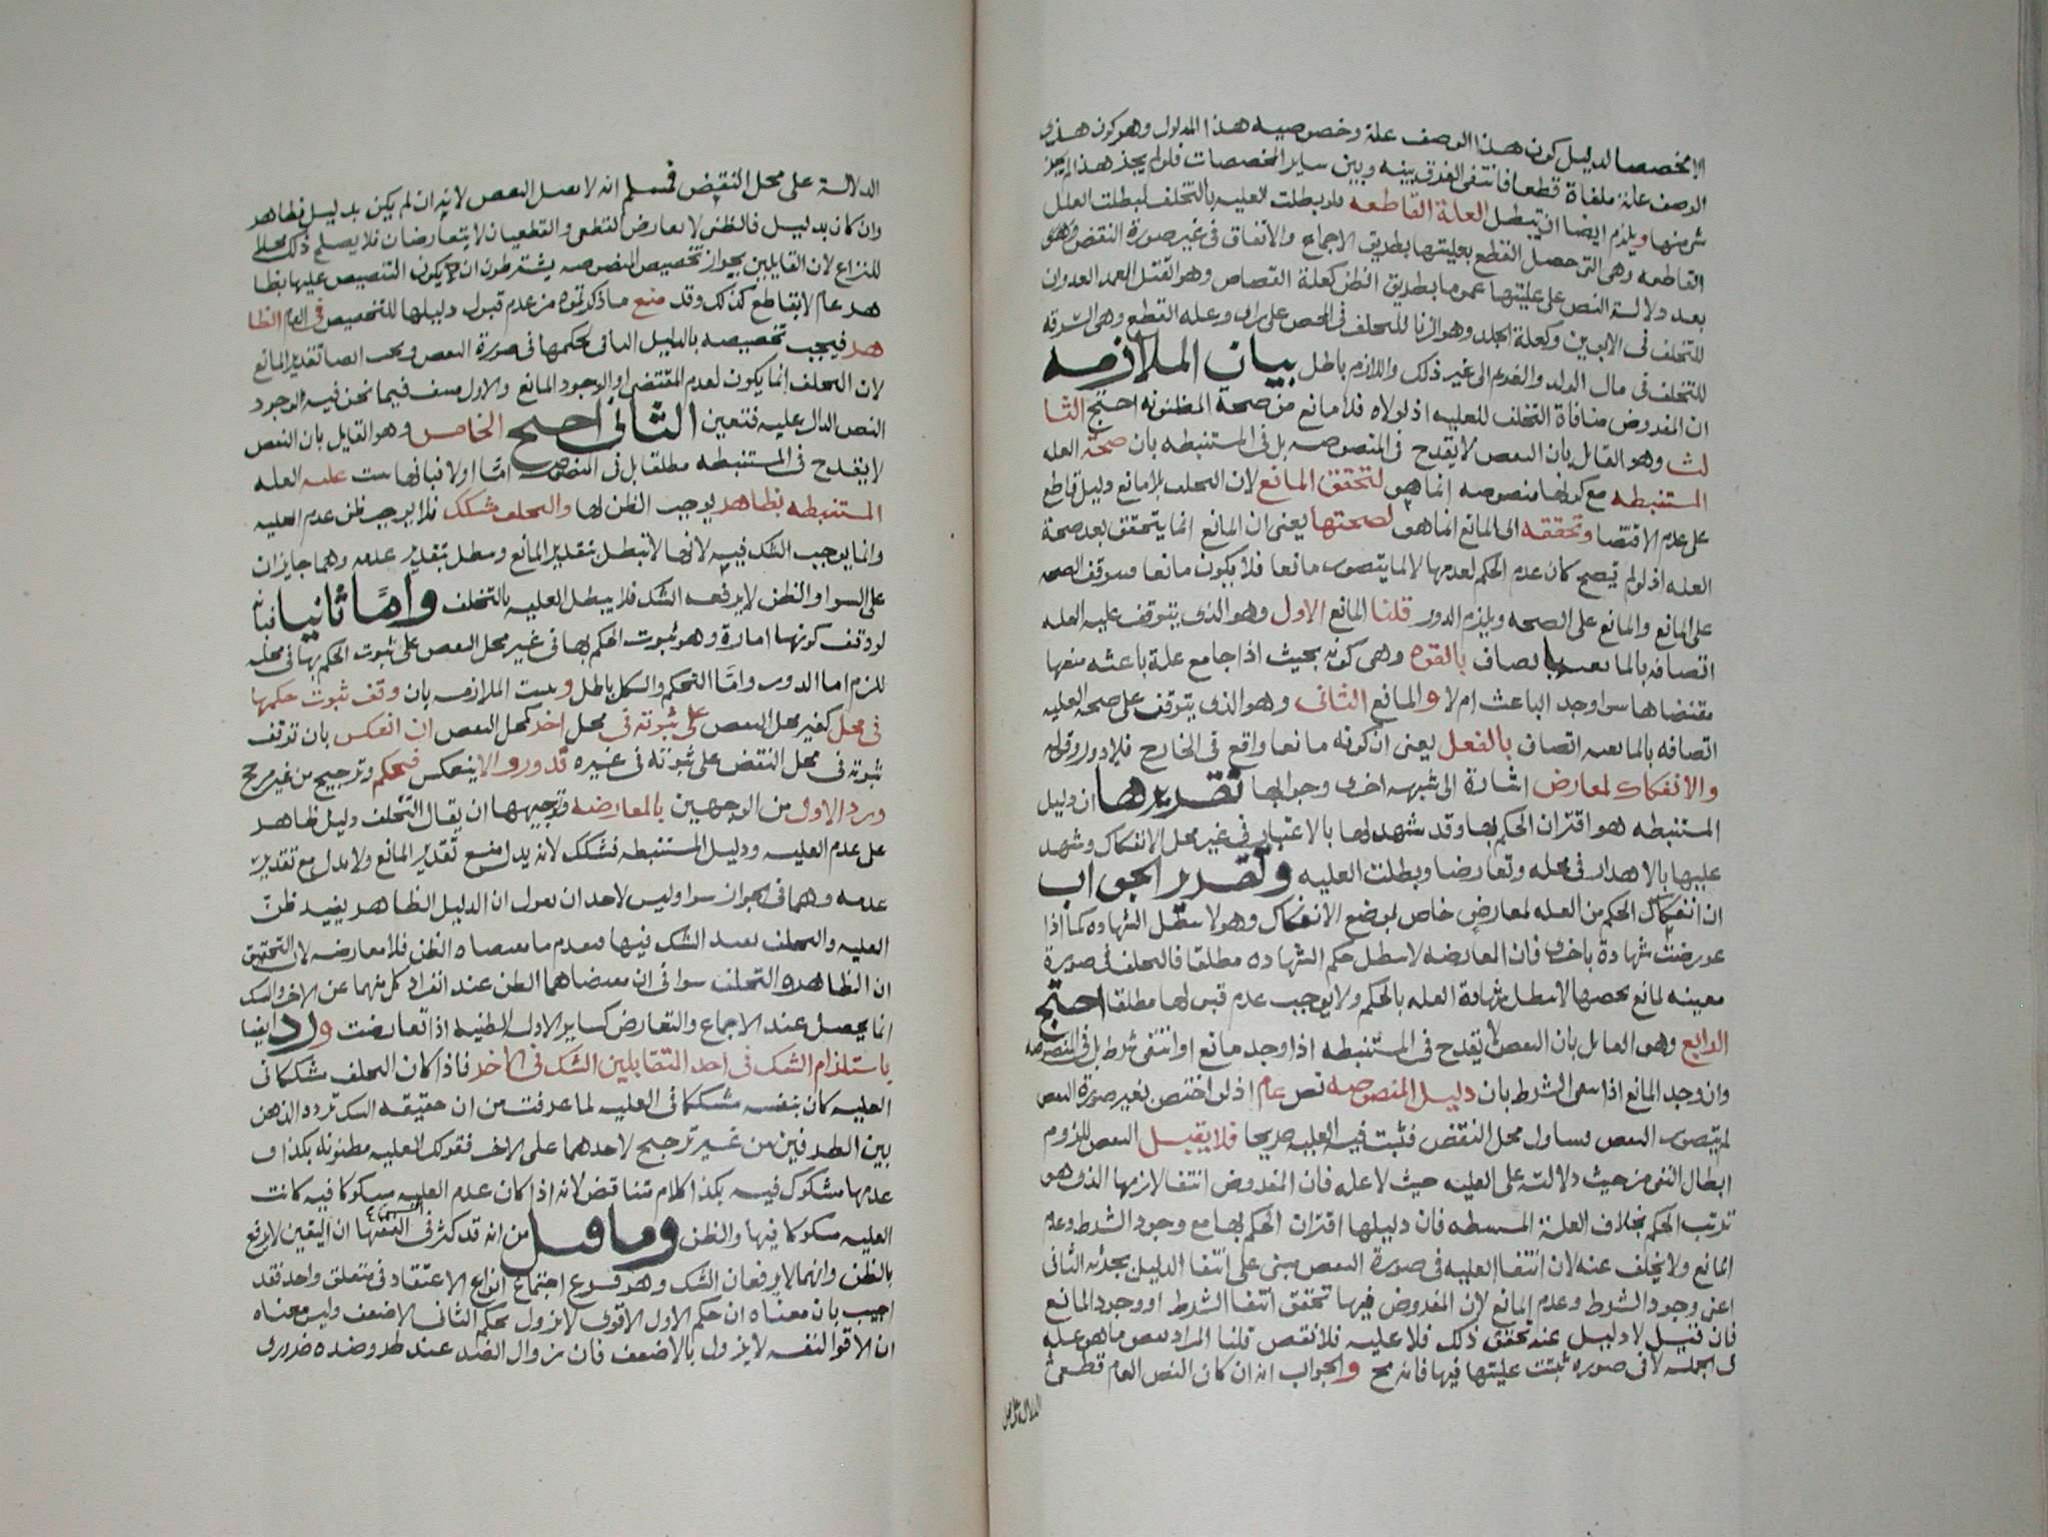 الا مخصصا لدليل كون هذا الوصف علة وخصوصيه هذا المدلول وهو كون هذا
الوصف علة ملغاة قطعا فانتفى الفرق بينه وبين ساير المخصصات فلو لم يجز هذا لم يجز
شي منها ويلزم ايضا ان تبطل العلة القاطعه فلو بطلت العليه بالتخلف لبطلت العلل
القاطعه وهى التى حصل القطع بعليتها بطريق الاجماع والاتفاق فى غير صورة النقض وهو
بعد دلالة النص على عليتها عموما بطريق الظن كعلة القصاص وهو القتل العمد العدوان
للتخلف فى الابوين وكعلة الجلد وهو الزنا للتخلف فى المحصن على راى وعله القطع وهى السرقه
للتخلف فى مال الولد والغريم الى غير ذلك واللازم باطل بيان الملازمه
ان المفروض منافاة التخلف للعليه اذ لولاه فلا مانع من صحة المظنونه احتج الثا
لث وهو القايل بان النقض لا يقدح فى المنصوصه بل فى المستنبطه بان صحة العله
المستنبطه مع كونها منصوصه انما هو لتحقق المانع لان التخلف بلا مانع دليل قاطع
على عدم الاقتضا وتحققه الى المانع انما هو لصحتها يعنى ان المانع انما يتحقق بعد صحة
العله اذ لو لم تصح كان عدم الحكم لعدمها لا لما يتصور مانعا فلا يكون مانعا فتتوقف الصحه
على المانع والمانع على الصحه ويلزم الدور قلنا المانع الاول وهو الذى يتوقف عليه العله
اتصافه بالمانعيه اتصاف بالقوه وهى كونه بحيث اذا جامع علة باعثه منعها
مقتضاها سوا وجد الباعث ام لا والمانع الثانى وهو الذى يتوقف على صحة العليه
اتصافه بالمانعيه اتصاف بالفعل يعنى ان كونه مانعا واقع فى الخارج فلا دور وقوله
والانفكاك لمعارض اشارة الى شبهه اخرى وجوابها تقريرها ان دليل
المستنبطه هو اقتران الحكم بها وقد شهد لها بالاعتبار فى غير محل الانفكاك وشهد
عليها بالاهدار فى محله وتعارضا وبطلت العليه وتقرير الجواب
ان انفكاك الحكم من العله لمعارض خاص بموضع الانفكاك وهو لا يبطل الشهاده كما اذا
عورضت شهادة باخرى فان المعارضه لا تبطل حكم الشهاده مطلقا فالتخلف فى صورة
معينه لمانع يخصها لا يبطل شهادة العله بالحكم ولا يوجب عدم قبولها مطلقا احتج
الرابع وهو القايل بان النقض لا يقدح فى المستنبطه اذا وجد مانع او انتفى شرط بل فى المنصوصه
وان وجد المانع اذا انتفى الشرط بان دليل المنصوصه نص عام اذ لو اختص بغير صورة النقض
لم يتصور النقض فيتناول محل النقض فثبت فيه العليه صريحا فلا يقبل النقض للزوم
ابطال النص من حيث دلالته على العليه حيث لا عله فان المفروض انتفا لازمها الذى هو
ترتب الحكم بخلاف العلة المستنبطه فان دليلها اقتران الحكم بها مع وجود الشرط وعدم
المانع ولا تخلف عنه لان انتفا العليه فى صورة النقض مبنى على انتفا الدليل بجزئه الثانى
اعنى وجود الشرط وعدم المانع لان المفروض فيها تحقق انتفا الشرط او وجود المانع
فان قيل لا دليل عند تحقق ذلك فلا عليه فلا نقض قلنا المراد نقض ما هو عله
فى الجمله لا فى صوره ثبتت عليتها فيها فانه مح والجواب انه ان كان النص العام قطعى
الدلالة على محل
الدلالة على محل النقض فمسلم انه لا يقبل النقض لانه ان لم يكن بدليل فظاهر
وان كان بدليل فالظنى لا يعارض القطعى والقطعيان لا يتعارضان فلا يصلح ذلك محلا
للنزاع لان القايلين بجواز تخصيص المنصوصه يشترطون ان يكون التنصيص عليها بظا
هر عام لا بقاطع كذلك وقد منع ما ذكرتموه من عدم قبول دليلها للتخصيص فى العام الظا
هر فيجب تخصيصه بالدليل النافى لحكمها فى صورة النقض ويجب ايضا تقدير المانع
لان التخلف انما يكون لعدم المقتضى او لوجود المانع والاول منتف فيما نحن فيه لوجود
النص الدال عليه فتعين الثانى احتج الخامس وهو القايل بان النقض
لا يقدح فى المستنبطه مطلقا بل فى المنصوصه اما اولا فبانها ثبتت عليه العله
المستنبطه بظاهر يوجب الظن لها والتخلف مشكك فلا يوجب ظن عدم العليه
وانما يوجب الشك فيه لانها لا تبطل بتقدير المانع وتبطل بتقدير عدمه وهما جايزان
على السوا والظن لا يرفعه الشك فلا يبطل العليه بالتخلف واما ثانيا فبانه
لو وقف كونها امارة وهو ثبوت الحكم بها فى غير محل النقض على ثبوت الحكم بها فى محله
للزم اما الدور واما التحكم والكل باطل وبيينت الملازمه بان وقف ثبوت حكمها
فى محل كغير محل النقض على ثبوته فى محل اخر كمحل النقض ان انعكس بان توقف
ثبوته فى محل النقض على ثبوته فى غيره فدور والا ينعكس فتحكم وترجيح من غير مرجح
ورد الاول من الوجهين بالمعارضه وتوجيهها ان يقال التخلف دليل ظاهر
على عدم العليه ودليل المستنبطه مشكك لانه يدل مع تقدير المانع ولا يدل مع تقدير
عدمه وهما فى الجواز سوا وليس لاحد ان يقول ان الدليل الظاهر يفيد ظن
العليه والتخلف يفيد الشك فيها فيعدم ما يعتضاه الظن فلا معارضه لان التحقيق
ان الظاهر والتخلف سوا فى ان مقتضاهما الظن عند انفراد كل منهما عن الاخر والشك
انما يحصل عند الاجماع والتعارض كساير الادله الظنيه اذا تعارضت ورد ايضا
باستلزام الشك فى احد المتقابلين الشك فى الاخر فاذا كان التخلف مشككا فى
العليه كان بنفسه مشككا فى العليه لما عرفت من ان حقيقه الشك تردد الذهن
بين الطرفين من غير ترجيح لاحدهما على الاخر فقولك العليه مظنونه بكذا و
عدمها مشكوك فيه بكذا كلام متناقض لانه اذا كان عدم العليه مشكوكا فيه كانت
العليه مشكوكا فيها والظن وما قيل من انه قد كثر فى السنة الفقها ان اليقين لا يرفع
بالظن وانهما لا يرفعان الشك وهو فرع اجتماع انواع الاعتقاد فى متعلق واحد فقد
اجيب بان معناه ان حكم الاول الاقوى لا يزول بحكم الثانى الاضعف وليس معناه
ان الاقوى لنفسه لا يزول بالاضعف فان زوال الضد عند طرو ضده ضرورى